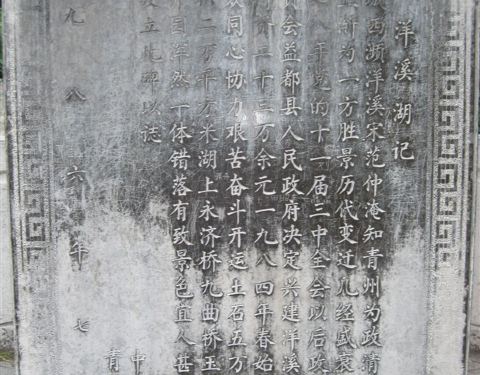 洋溪湖记
城西濒洋溪宋范仲淹知青州为政清
新为一方胜景历代变迁几经盛衰
八年党的十一届三中全会以后政
会益都县人民政府决定兴建洋溪
二十二万余元一九八四年春始
同心协力艰苦奋斗开运土石五万
二万平方米湖上永济桥九曲桥玉
浑然一体错落有致景色宜人甚
立此碑以志
中
青
九八六年七